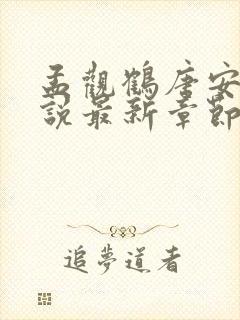 孟觀鶴唐安
說最新章節
追夢道者